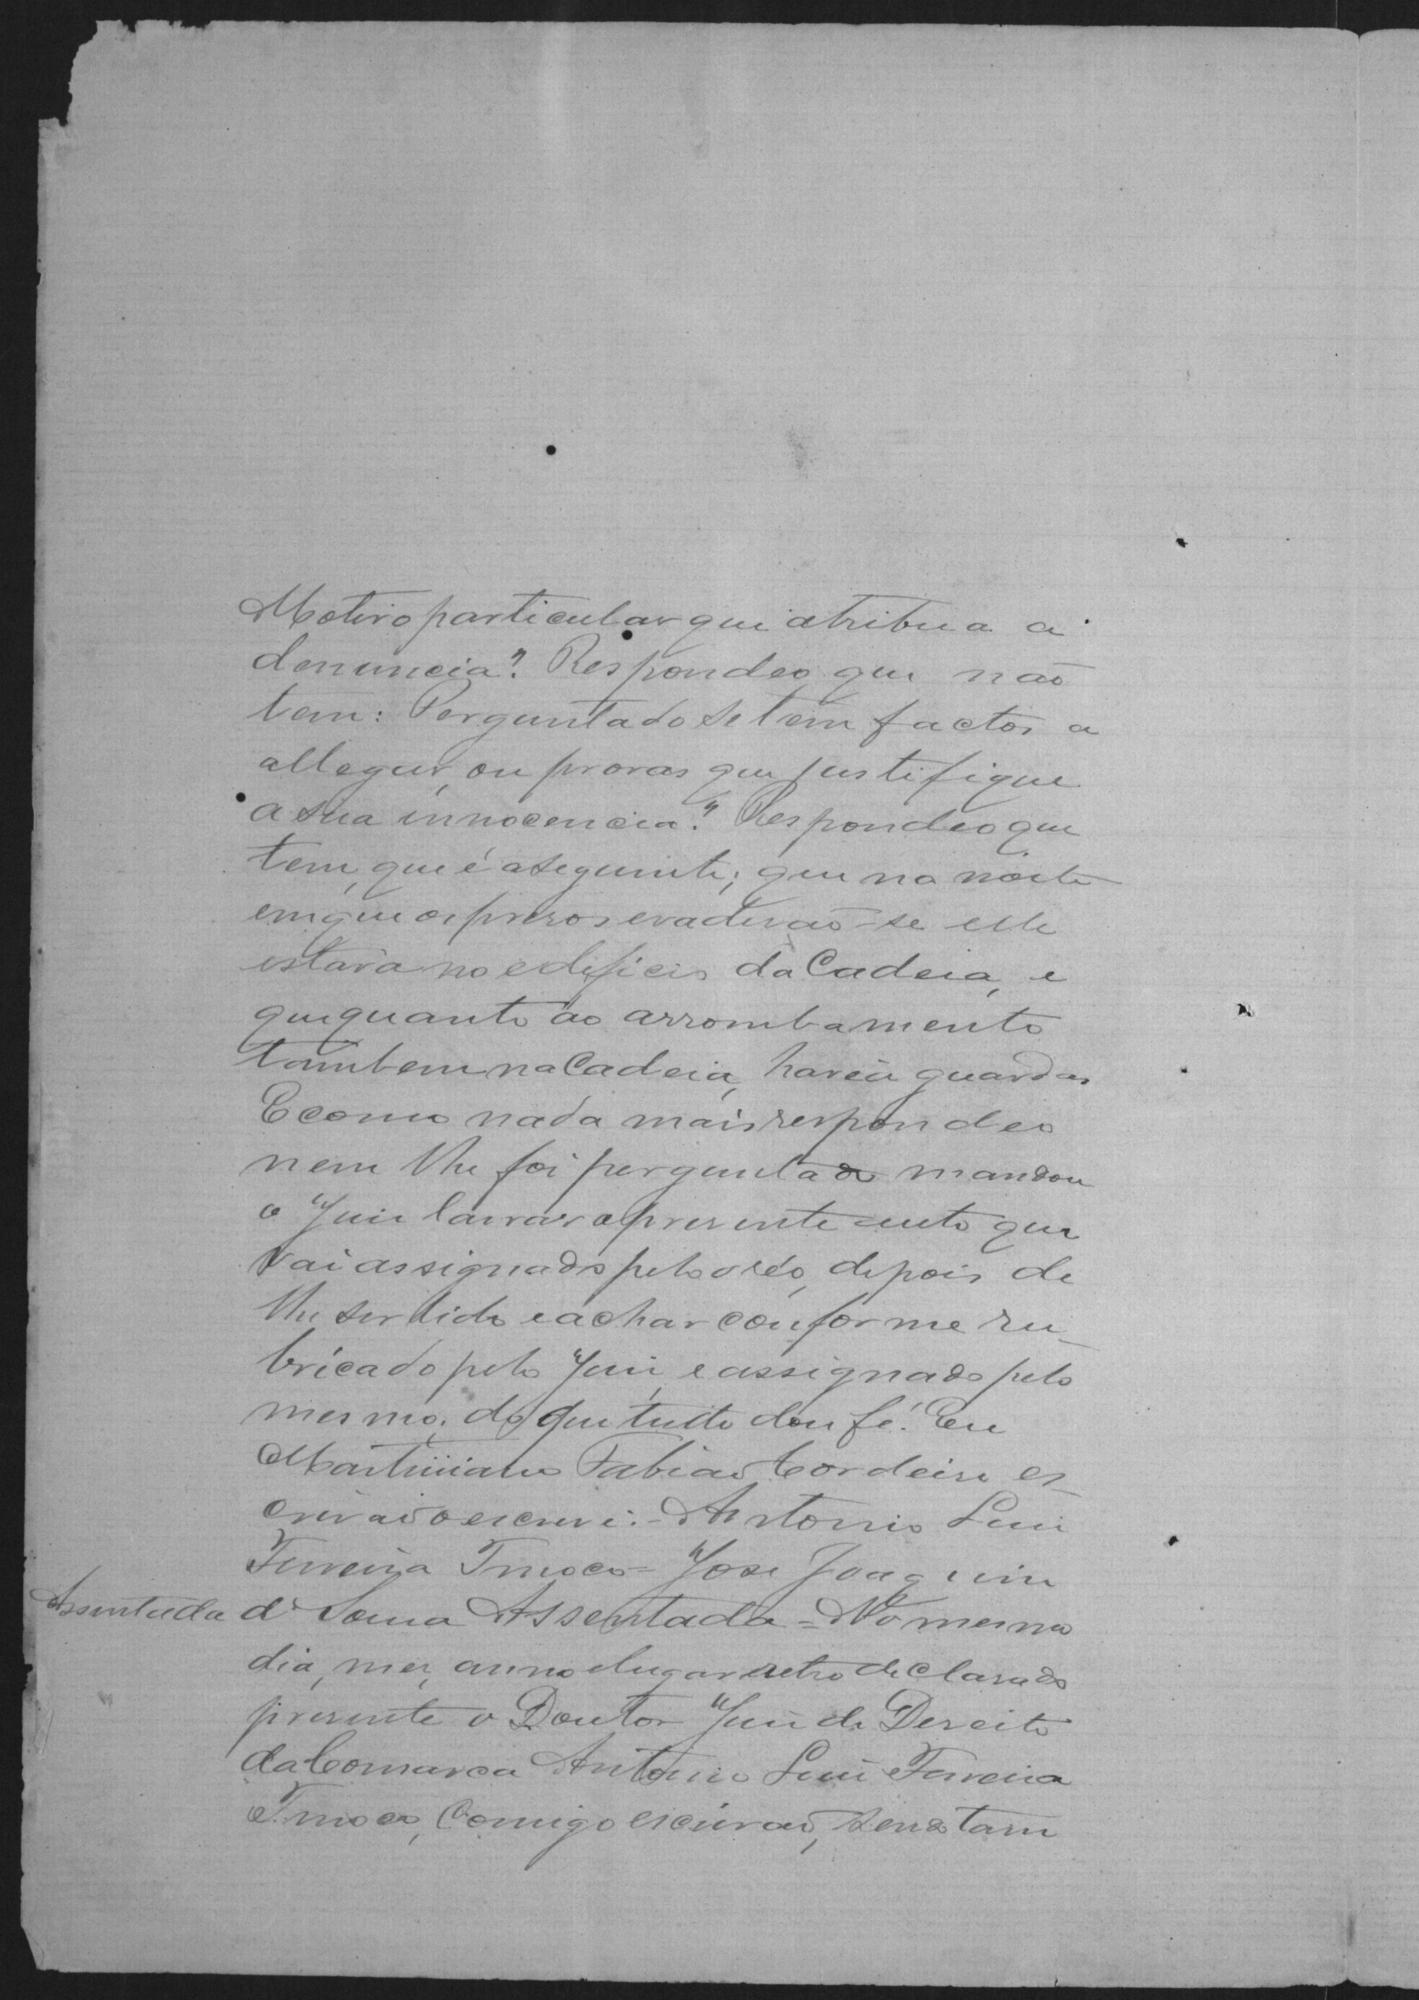 Motivo particular que atribua a
denuncia? Respondeo que não
tem: Perguntado se tem factos a
allegar, ou provas que justifique
a sua innocencia? Respondeo que
tem, que é a seguinte; que na noite
em que os prezos evadirão-se elle
estava no edificio da Cadeia, e
que quanto ao arrombamento
tambem na Cadeia, havia guardas
E como nada mais respondeo
nem lhe foi perguntado mandou
o Juiz lavrar o presente auto que
vai assignado pelo réo, depois de
lhe ser lido e achar conforme ru-
bricado pelo Juiz, e assignado pelo
mesmo, do que tudo dou fé. Eu
Martiniano Fabiao Cordeiro es-
crivão o escrevi. - Antonio Luiz
Ferreira Tinoco = Jose Joaquim
Assentada d' Souza Assentada = No mesmo
dia, mez, anno e lugar retro declarado
presente o Doutor Juiz de Dereito
da Comarca Antonio Luiz Ferreira
Tinoco, Comigo escrivão, sendo tam